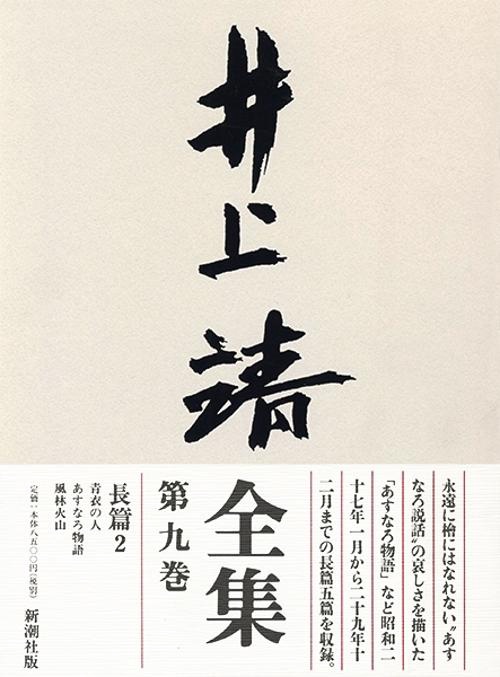 井上靖
全集
第九巻
永遠に檜にはなれない〝あす
なろ説話〟の哀しさを描いた
「あすなろ物語」など昭和二
十七年一月から二十九年十
二月までの長篇五篇を収録。
長篇2
青衣の人
あすなろ物語
風林火山
定価:本体八五〇〇円(税別)
新潮社版